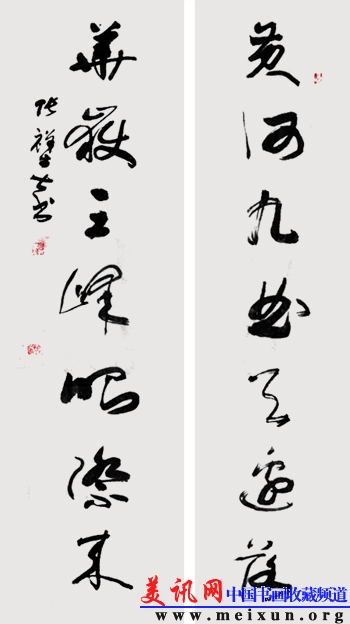 黄河九曲天邊落
華嶽三峰眼際来
美讯网 中国书画收藏频道
www.meixun.org